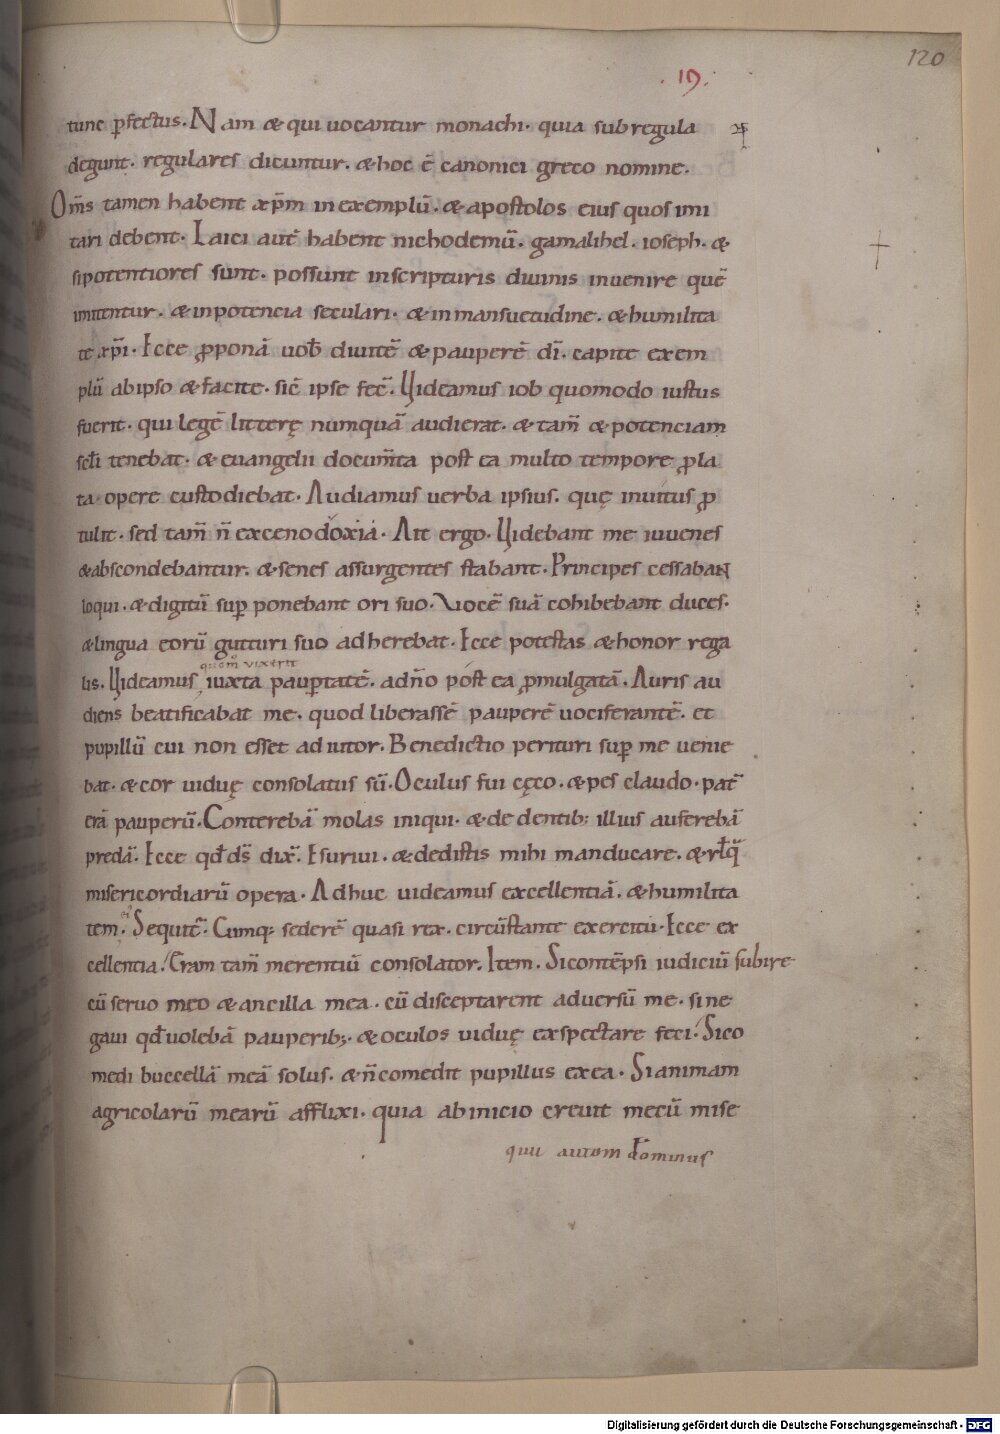 120
.19.
tunc p̄fectus. Nam & qui uocantur monachi. quia sub regula
degunt. regulares dicuntur. & hoc ē canonici greco nomine.
Om̄s tamen habent xp̄m in exemplū. & apostolos eius quos imi
tari debent. Laici aut̄ habent nichodemū. gamalihel. ioseph. &
si potentiores sunt. possunt in scripturis diuinis inuenire quē
imitentur. & in potencia seculari. & in mansuetudine. & humilita
te xp̄i. Ecce ꝓponā uob̄ diuitē & pauperē dī. capite exem
plū ab ipso & facite. sic̄ ipse fec̄. Uideamus iob quomodo iustus
fuerit. qui legē litterę numquā audierat. & tam̄ & potenciam
sct̄i tenebat. & euangelii docum̄ta post ea multo tempore ꝓla
ta opere custodiebat. Audiamus uerba ipsius. quę inuitus ꝓ
tulit. sed tam̄ n̄ ex cenodoxia. Ait ergo. Uidebant me iuuenes
& abscondebantur. & senes assurgentes stabant. Principes cessabant
loqui. & digitū suꝑ ponebant ori suo. Uocē suā cohibebant duces.
& lingua eorū gutturi suo adherebat. Ecce potestas & honor rega
quom̄ vixerit
lis. Uideamus iuxta pauꝑtatē. a dn̄o post ea ꝓmulgatā. Auris au
diens beatificabat me. quod liberassē pauperē uociferantē. et
pupillū cui non esset adiutor. Benedictio perituri suꝑ me uenie
bat. & cor uiduę consolatus sū. Oculus fui cęco. & pes claudo. pat̄
erā pauperū. Conterebā molas iniqui. & de dentib; illius auferebā
predā. Ecce qd̄ ds̄ dix̄. Esuriui. & dedistis mihi manducare. & rl̄q̄
misericordiarū opera. Adhuc uideamus excellentiā. & humilita
tem. Sequit̄. Cumq; sederē quasi rex. circūstante exercitu. Ecce ex
cellentia. Eram tam̄ merentiū consolator. Item. Si contēpsi iudiciū subire
cū seruo meo & ancilla mea. cū disceptarent aduersū me. si ne
gaui qd̄ uolebā pauperib;. & oculos uiduę exspectare feci. Si co
medi buccellā meā solus. & n̄ comedit pupillus ex ea. Si animam
agricolarū mearū afflixi. quia ab inicio creuit mecū mise
dominus
Digitalisierung gefördert durch die Deutsche Forschungsgemeinschaft - DFG